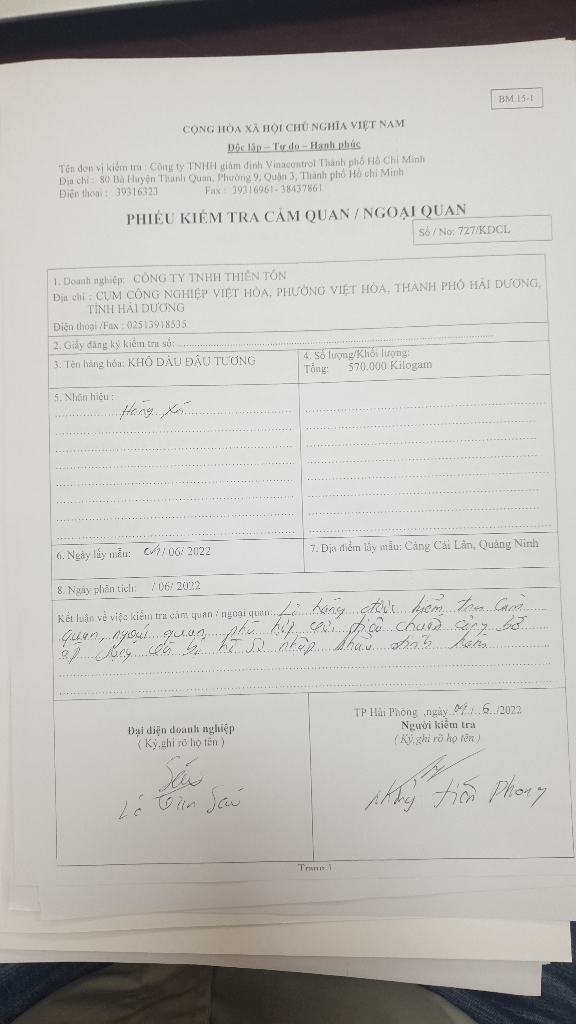 BM.15-1
CỘNG HÒA XÃ HỘI CHỦ NGHĨA VIỆT NAM
Độc lập – Tự do – Hạnh phúc
Tên đơn vị kiểm tra : Công ty TNHH giám định Vinacontrol Thành phố Hồ Chí Minh
Địa chỉ : 80 Bà Huyện Thanh Quan, Phường 9, Quận 3, Thành phố Hồ chí Minh
Điện thoại : 39316323 Fax : 39316961- 38437861
PHIẾU KIỂM TRA CẢM QUAN / NGOẠI QUAN
Số / No: 727/KDCL
1. Doanh nghiệp: CÔNG TY TNHH THIÊN TÔN
Địa chỉ : CỤM CÔNG NGHIỆP VIỆT HÒA, PHƯỜNG VIỆT HÒA, THÀNH PHỐ HẢI DƯƠNG,
TỈNH HẢI DƯƠNG
Điện thoại /Fax : 02513918535
2. Giấy đăng ký kiểm tra số:
3. Tên hàng hóa: KHÔ DẦU ĐẬU TƯƠNG
4. Số lượng/Khối lượng:
Tổng: 570.000 Kilogam
5. Nhãn hiệu :
Hàng xá
6. Ngày lấy mẫu: /06/ 2022
7. Địa điểm lấy mẫu: Cảng Cái Lân, Quảng Ninh
8. Ngày phân tích: / 06/ 2022
Kết luận về việc kiểm tra cảm quan / ngoại quan: Lô hàng được kiểm tra cảm
quan, ngoại quan, phù hợp với tiêu chuẩn công bố
áp dụng và hồ sơ nhập khẩu
TP Hải Phòng ,ngày 04/ 6 /2022
Đại diện doanh nghiệp
( Ký,ghi rõ họ tên )
Người kiểm tra
(Ký,ghi rõ họ tên )
Tiến Phong
Trang 1